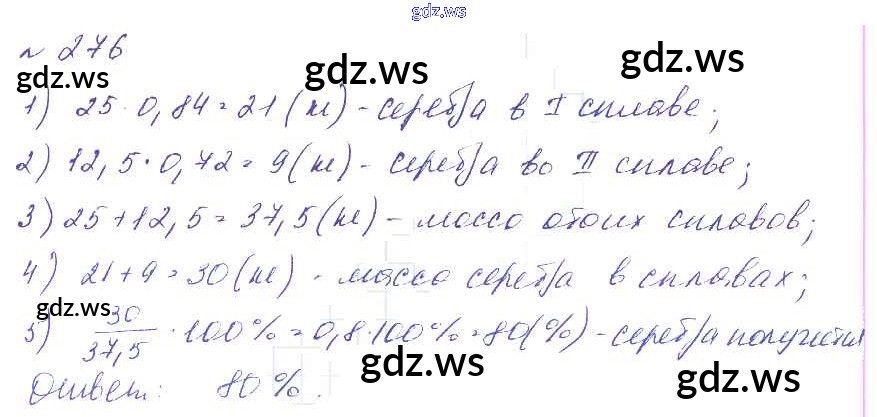 gdz.ws
№ 276
gdz.ws gdz.ws gdz.ws
1) 25 · 0,84 = 21 (кг) - серебра в I сплаве;
2) 12,5 · 0,72 = 9 (кг) - серебра во II сплаве;
3) 25 + 12,5 = 37,5 (кг) - масса обоих сплавов;
4) 21 + 9 = 30 (кг) - масса серебра в сплавах;
gdz.ws
5) 30/37,5 · 100% = 0,8 · 100% = 80 (%) - серебра получится
gdz.ws gdz.ws
Ответ: 80%.